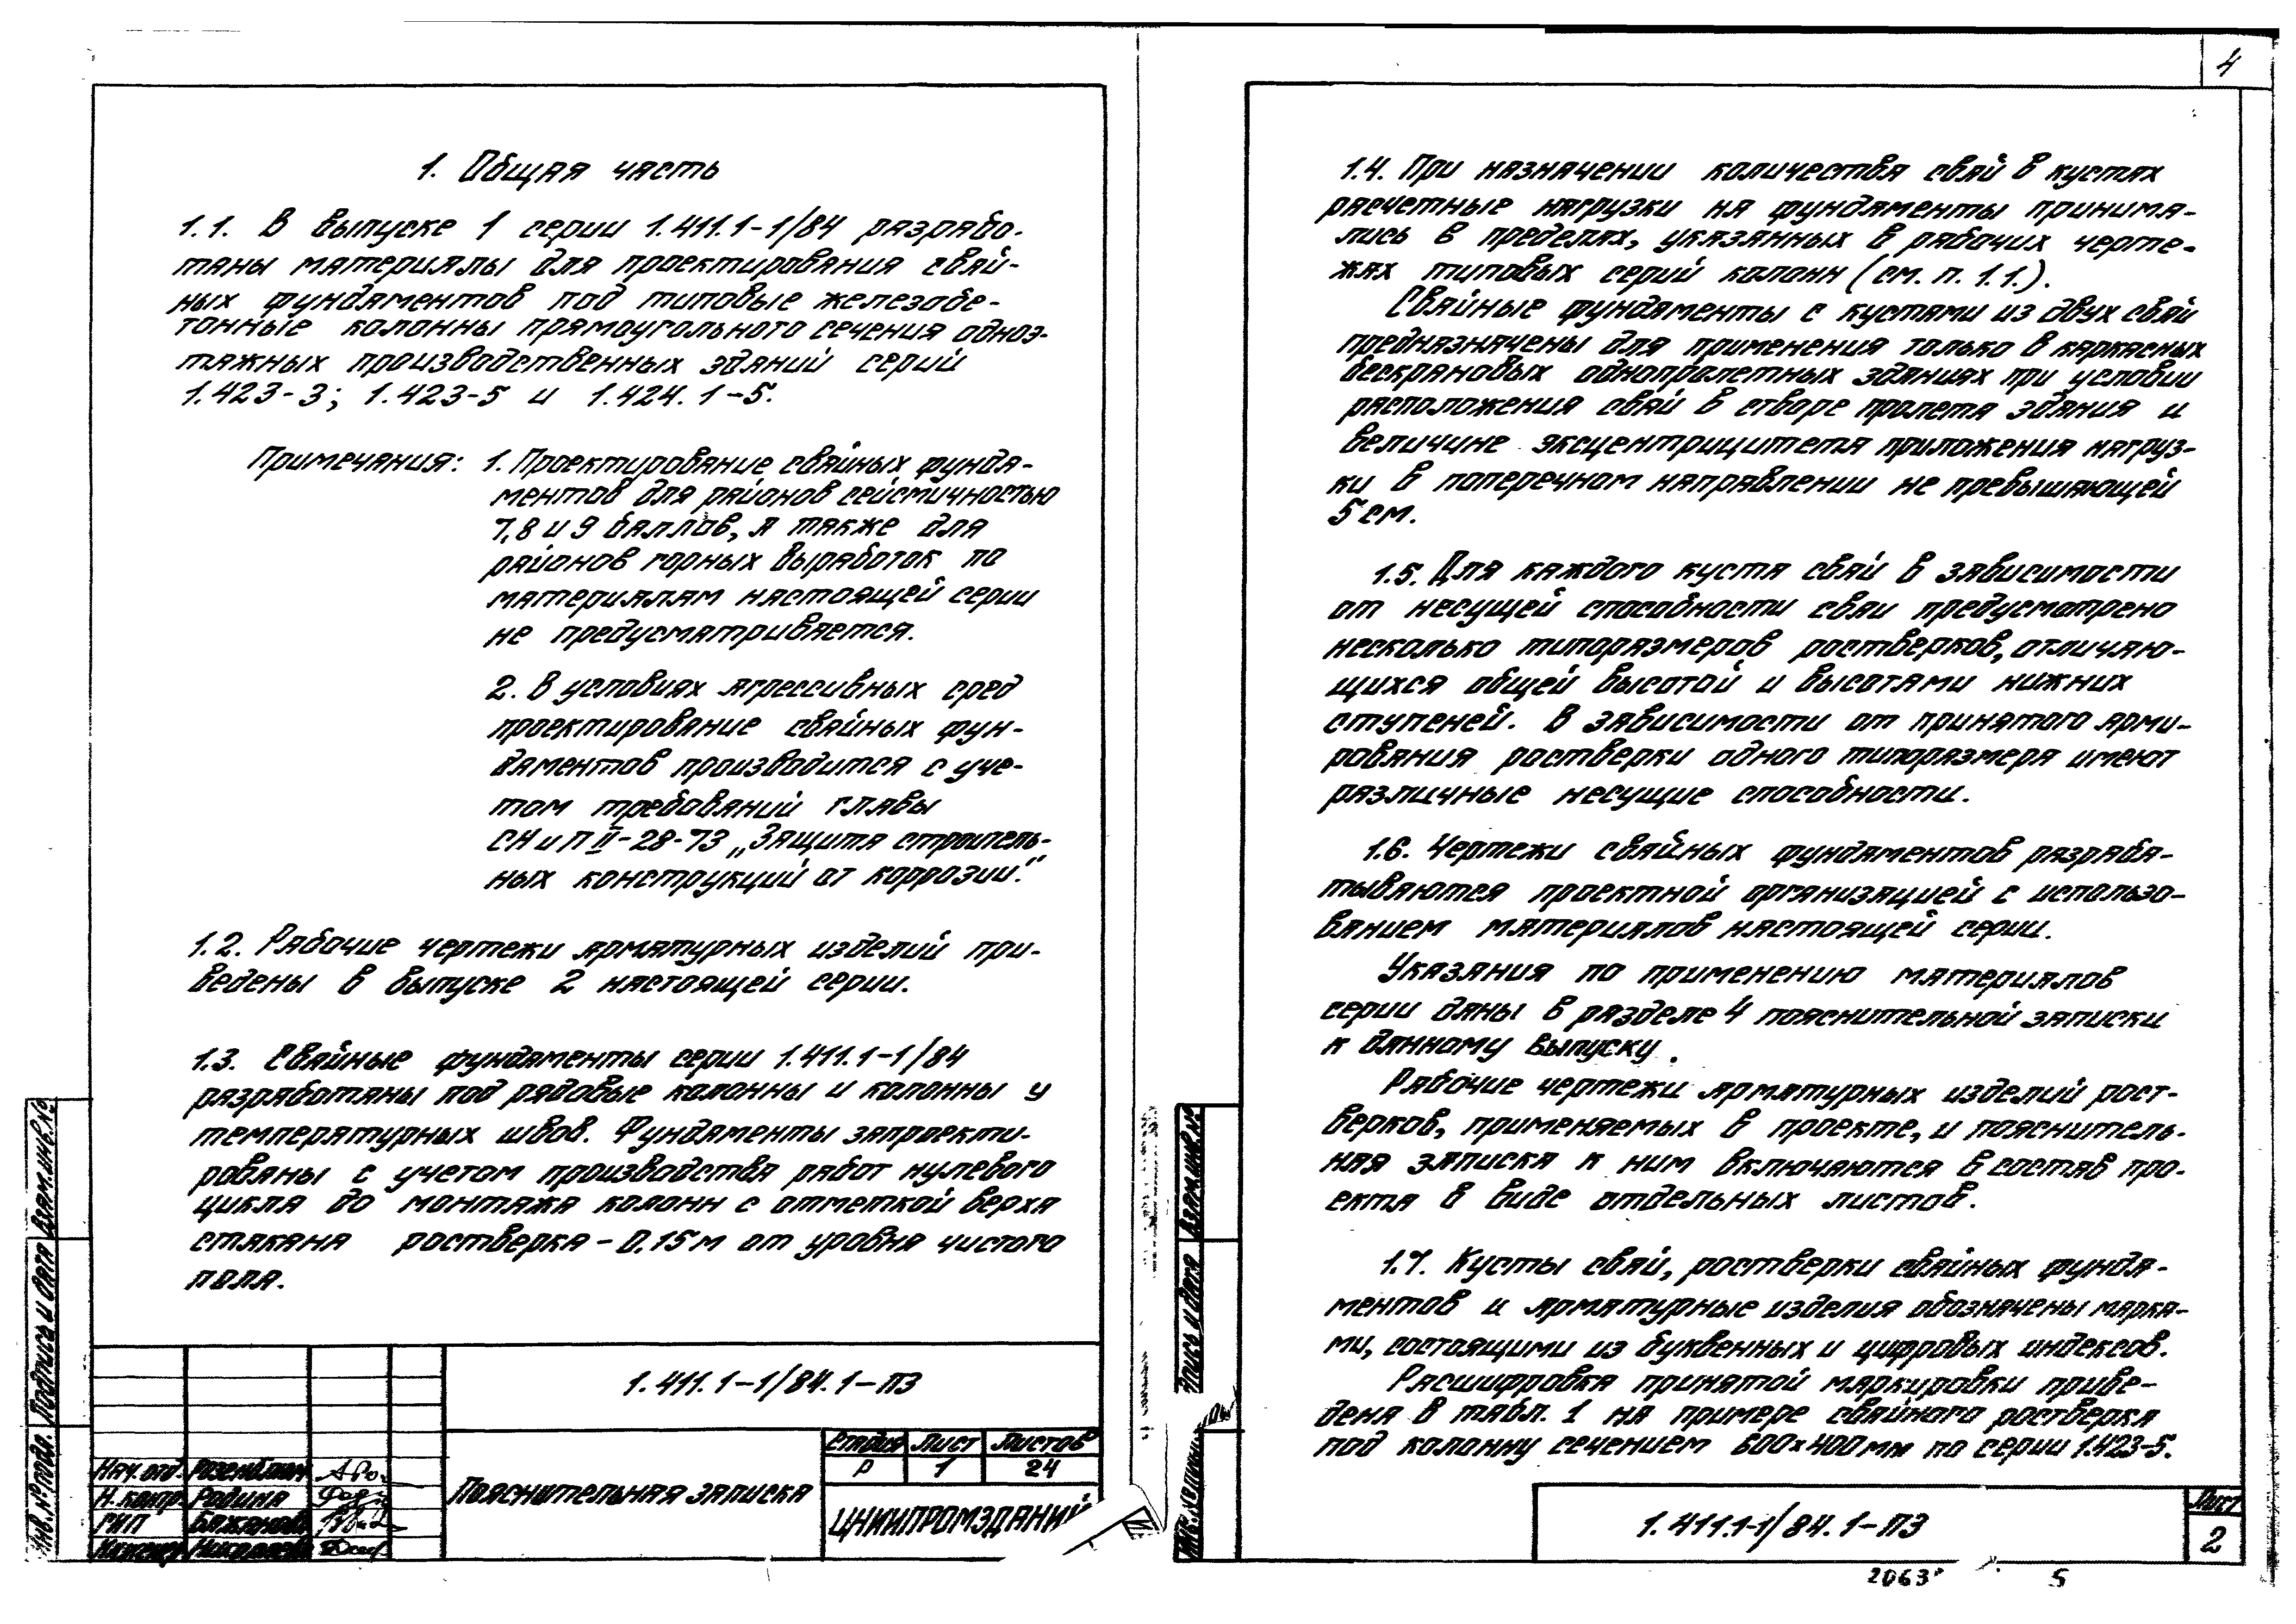 1. Общая часть
1.1. В выпуске 1 серии 1.411.1-1/84 разрабо-
таны материалы для проектирования свай-
ных фундаментов под типовые железобе-
тонные колонны прямоугольного сечения одноэ-
тажных производственных зданий серий
1.423-3; 1.423-5 и 1.424.1-5.
Примечания: 1. Проектирование свайных фунда-
ментов для районов сейсмичностью
7,8 и 9 баллов, а также для
районов горных выработок по
материалам настоящей серии
не предусматривается.
2. В условиях агрессивных сред
проектирование свайных фун-
даментов производится с уче-
том требований главы
СНиП II-28-73 „Защита строитель-
ных конструкций от коррозии."
1.2. Рабочие чертежи арматурных изделий при-
ведены в выпуске 2 настоящей серии.
1.3. Свайные фундаменты серии 1.411.1-1/84
разработаны под рядовые колонны и колонны у
температурных швов. Фундаменты запроекти-
рованы с учетом производства работ нулевого
цикла до монтажа колонн с отметкой верха
стакана ростверка - 0.15 м от уровня чистого
пола.
1.411.1-1/84.1-ПЗ
Стадия Лист Листов
Р 1 24
Пояснительная записка
ЦНИИПРОМЗДАНИЙ
Нач. отд. Розенблюм
Н. контр. Родина
ГИП Бажанова
Инв.№ подл. Подпись и дата Взам.инв.№
4
1.4. При назначении количества свай в кустах
расчетные нагрузки на фундаменты принима-
лись в пределах, указанных в рабочих черте-
жах типовых серий колонн (см. п. 1.1.).
Свайные фундаменты с кустами из двух свай
предназначены для применения только в каркасных
бескрановых однопролетных зданиях при условии
расположения свай в створе пролета здания и
величине эксцентрицитета приложения нагруз-
ки в поперечном направлении не превышающей
5 см.
1.5. Для каждого куста свай в зависимости
от несущей способности сваи предусмотрено
несколько типоразмеров ростверков, отличаю-
щихся общей высотой и высотами нижних
ступеней. В зависимости от принятого арми-
рования ростверки одного типоразмера имеют
различные несущие способности.
1.6. Чертежи свайных фундаментов разраба-
тываются проектной организацией с использо-
ванием материалов настоящей серии.
Указания по применению материалов
серии даны в разделе 4 пояснительной записки
к данному выпуску.
Рабочие чертежи арматурных изделий рост-
верков, применяемых в проекте, и пояснитель-
ная записка к ним включаются в состав про-
екта в виде отдельных листов.
1.7. Кусты свай, ростверки свайных фунда-
ментов и арматурные изделия обозначены марка-
ми, состоящими из буквенных и цифровых индексов.
Расшифровка принятой маркировки приве-
дена в табл. 1 на примере свайного ростверка
под колонну сечением 600×400мм по серии 1.423-5.
1.411.1-1/84.1-ПЗ
Лист
2
Взам.инв.№
2063
5